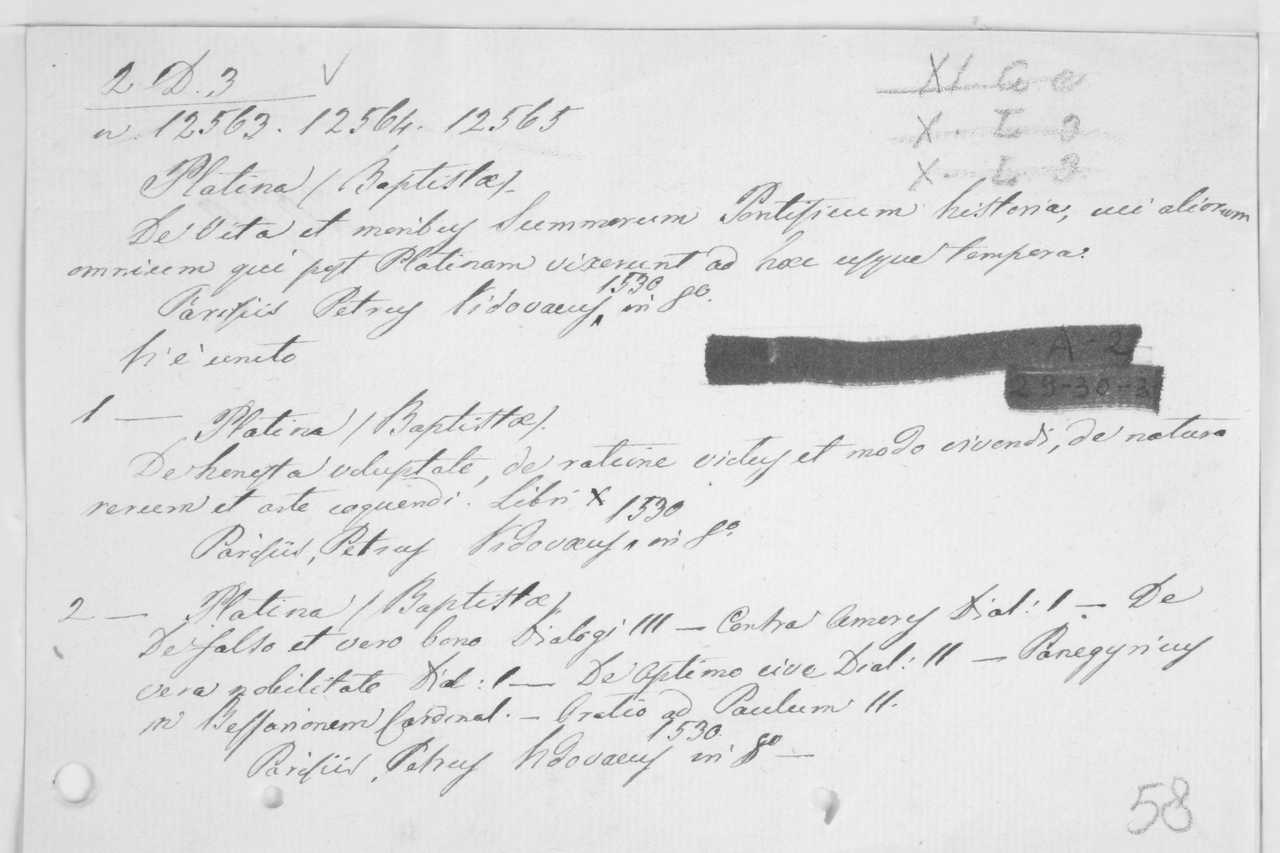 2. D. 3 V
n. 12563. 12564. 12565
XI G e
X - L 3
X - L 3
Platina (Baptistæ).
De Vita et moribus Summorum Pontificum historia, uci aliorum
omnium qui post Platinam vixerunt ad hæc usque tempora.
1530
Parisiis Petrus Vidovaeus, in 8º.
A - 2
29-30-3
Vi è unito
1 — Platina (Baptistæ).
De honesta voluptate, de ratione victus et modo vivendi, de natura
rerum et arte coquendi. Libri X
1530
Parisiis, Petrus Vidovæus, in 8º
2 — Platina (Baptistæ).
De falso et vero bono Dialogi III — Contra Amores Dial: I — De
vera nobilitate Dial: I — De optimo cive Dial: II — Panegyricus
in Bessarionem Cardinal. — Oratio ad Paulum II.
1530
Parisiis, Petrus Vidovaeus in 8º —
58